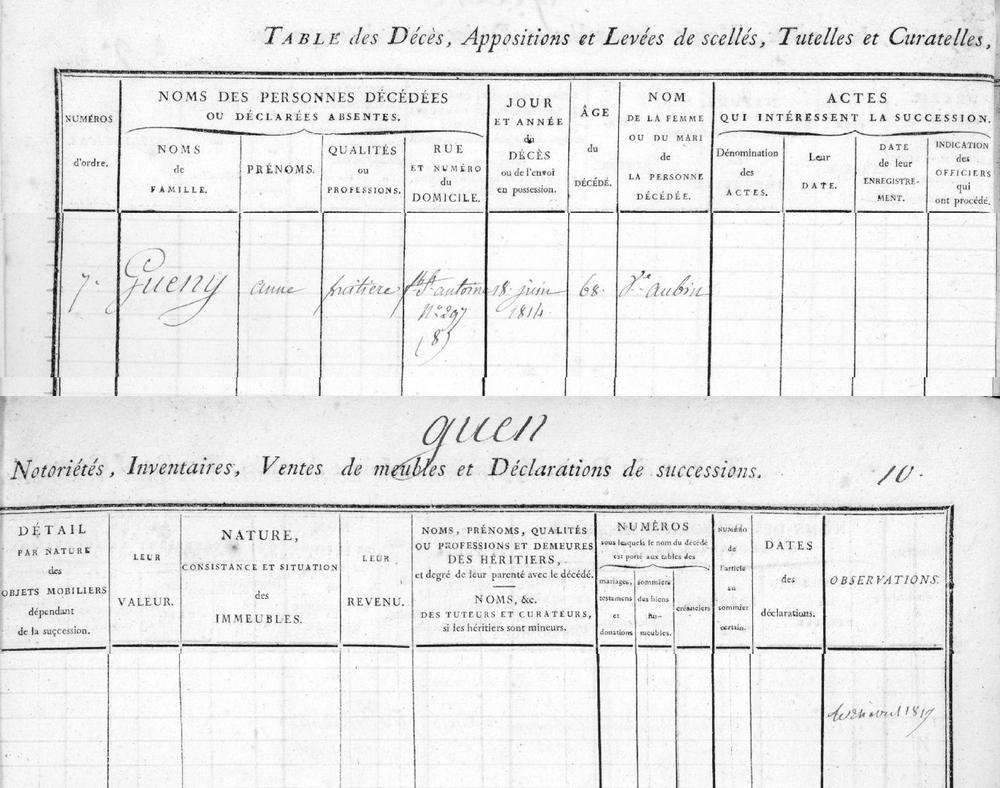 TABLE des Décès, Appositions et Levées de scellés, Tutelles et Curatelles,
NUMÉROS
d'ordre.
NOMS DES PERSONNES DÉCÉDÉES
OU DÉCLARÉES ABSENTES.
NOMS
de
FAMILLE.
PRÉNOMS.
QUALITÉS
ou
PROFESSIONS.
RUE
ET NUMÉRO
du
DOMICILE.
JOUR
ET ANNÉE
du
DÉCÈS
ou de l'envoi
en possession.
ÂGE
du
DÉCÉDÉ.
NOM
DE LA FEMME
OU DU MARI
de
LA PERSONNE
DÉCÉDÉE.
ACTES
QUI INTÉRESSENT LA SUCCESSION.
Dénomination
des
ACTES.
Leur
DATE.
DATE
de leur
ENREGISTRE-
MENT.
INDICATION
des
OFFICIERS
qui
ont procédé.
7. Gueny anne fruitiere fbg St. antoine 18 juin 68. Ve. aubin
N° 297 1814
(8)
guen
Notoriétés, Inventaires, Ventes de meubles et Déclarations de successions. 10.
DÉTAIL
PAR NATURE
des
OBJETS MOBILIERS
dépendant
de la succession.
LEUR
VALEUR.
NATURE,
CONSISTANCE ET SITUATION
des
IMMEUBLES.
LEUR
REVENU.
NOMS, PRÉNOMS, QUALITÉS
OU PROFESSIONS ET DEMEURES
DES HÉRITIERS,
et degré de leur parenté avec le décédé.
NOMS, &c.
DES TUTEURS ET CURATEURS,
si les héritiers sont mineurs.
NUMÉROS
sous lesquels le nom du décédé
est porté aux tables des
mariages,
testamens
et
donations
sommiers
des biens
im-
meubles.
créanciers
NUMÉRO
de
l'article
au
sommier
certain.
DATES
des
déclarations.
OBSERVATIONS.
avril 1819